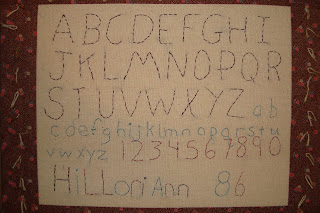 ABCDEFGHI
JKLMNOPQR
STUVWXYZ ab
cdefghijklmnopqrstu
vwxyz 1234567890
HiLLori Ann 86